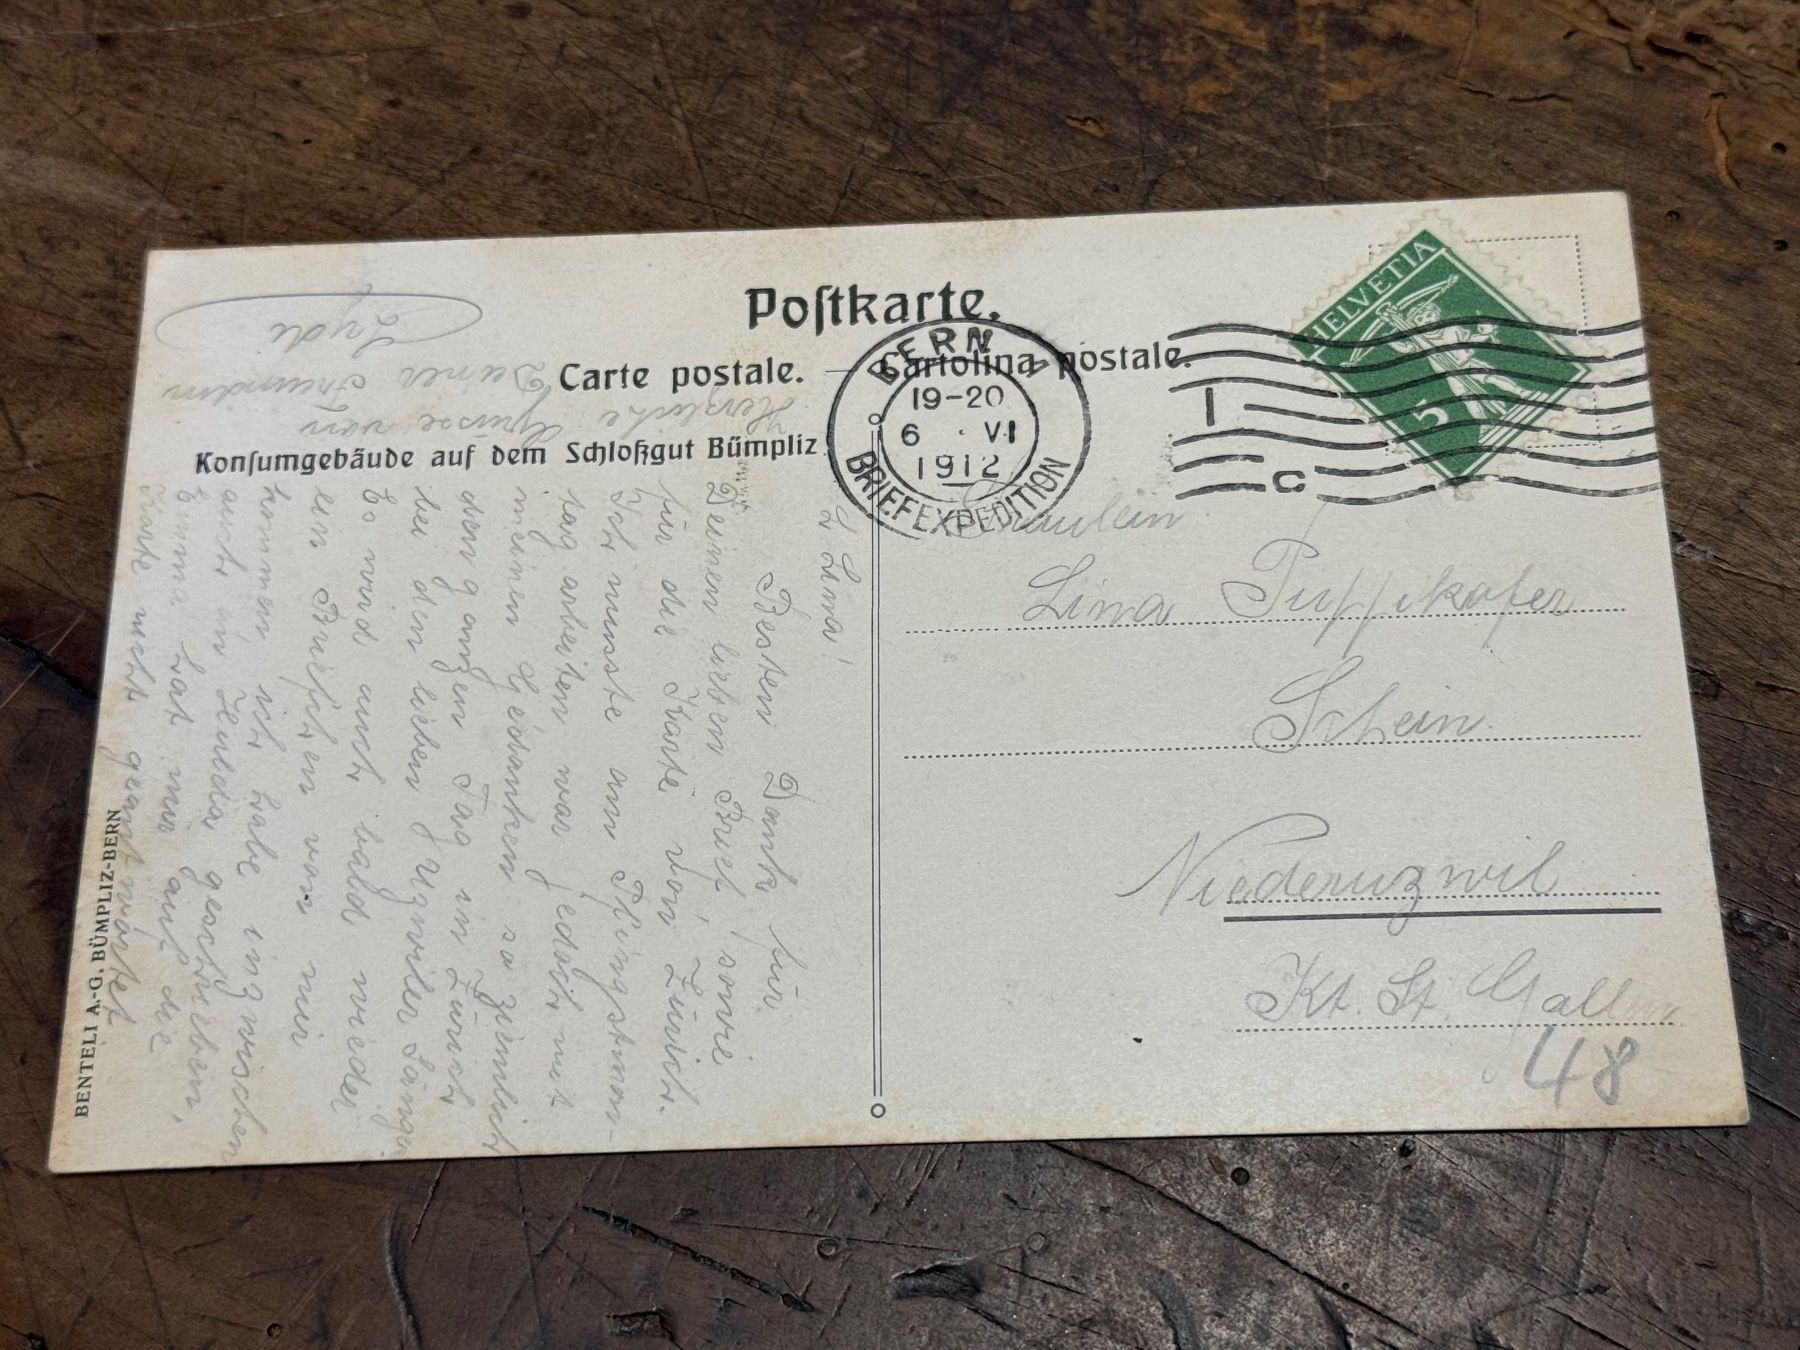 Postkarte.
Carte postale. — Cartolina postale.
Konsumgebäude auf dem Schloßgut Bümpliz
BERN 1
19-20
6 . VI
1912
BRIEFEXPEDITION
1
C
HELVETIA
5
Fräulein
Lina Puppikofer
Schein
Niederuzwil
Kt. St. Gallen
48
L. Lina!
Besten Dank für
Deinen lieben Brief, sowie
für die Karte von Zürich.
Ich musste am Pfingstmon-
tag arbeiten war jedoch mit
meinen Gedanken so ziemlich
den ganzen Tag in Zürich
bei den lieben Uzwiler Sänger
Es wird auch bald wieder
ein Briefchen von mir
kommen ich habe inzwischen
auch an geschrieben,
Emma hat mir auf die
Karte nicht geantwortet
Herzliche Grüsse von
Deiner Freundin
Lydi
BENTELI A.-G. BÜMPLIZ-BERN